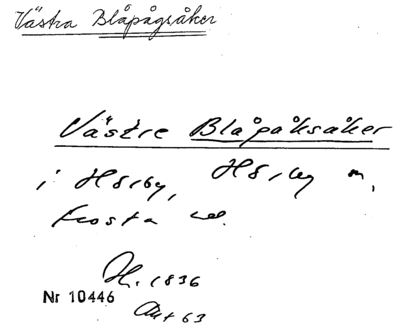 Västra Blåpågsåker
Västre Blåpåksåker
i Hörby, Hörby m,
Frosta
H. 1836
Nr 10446
Akt 63